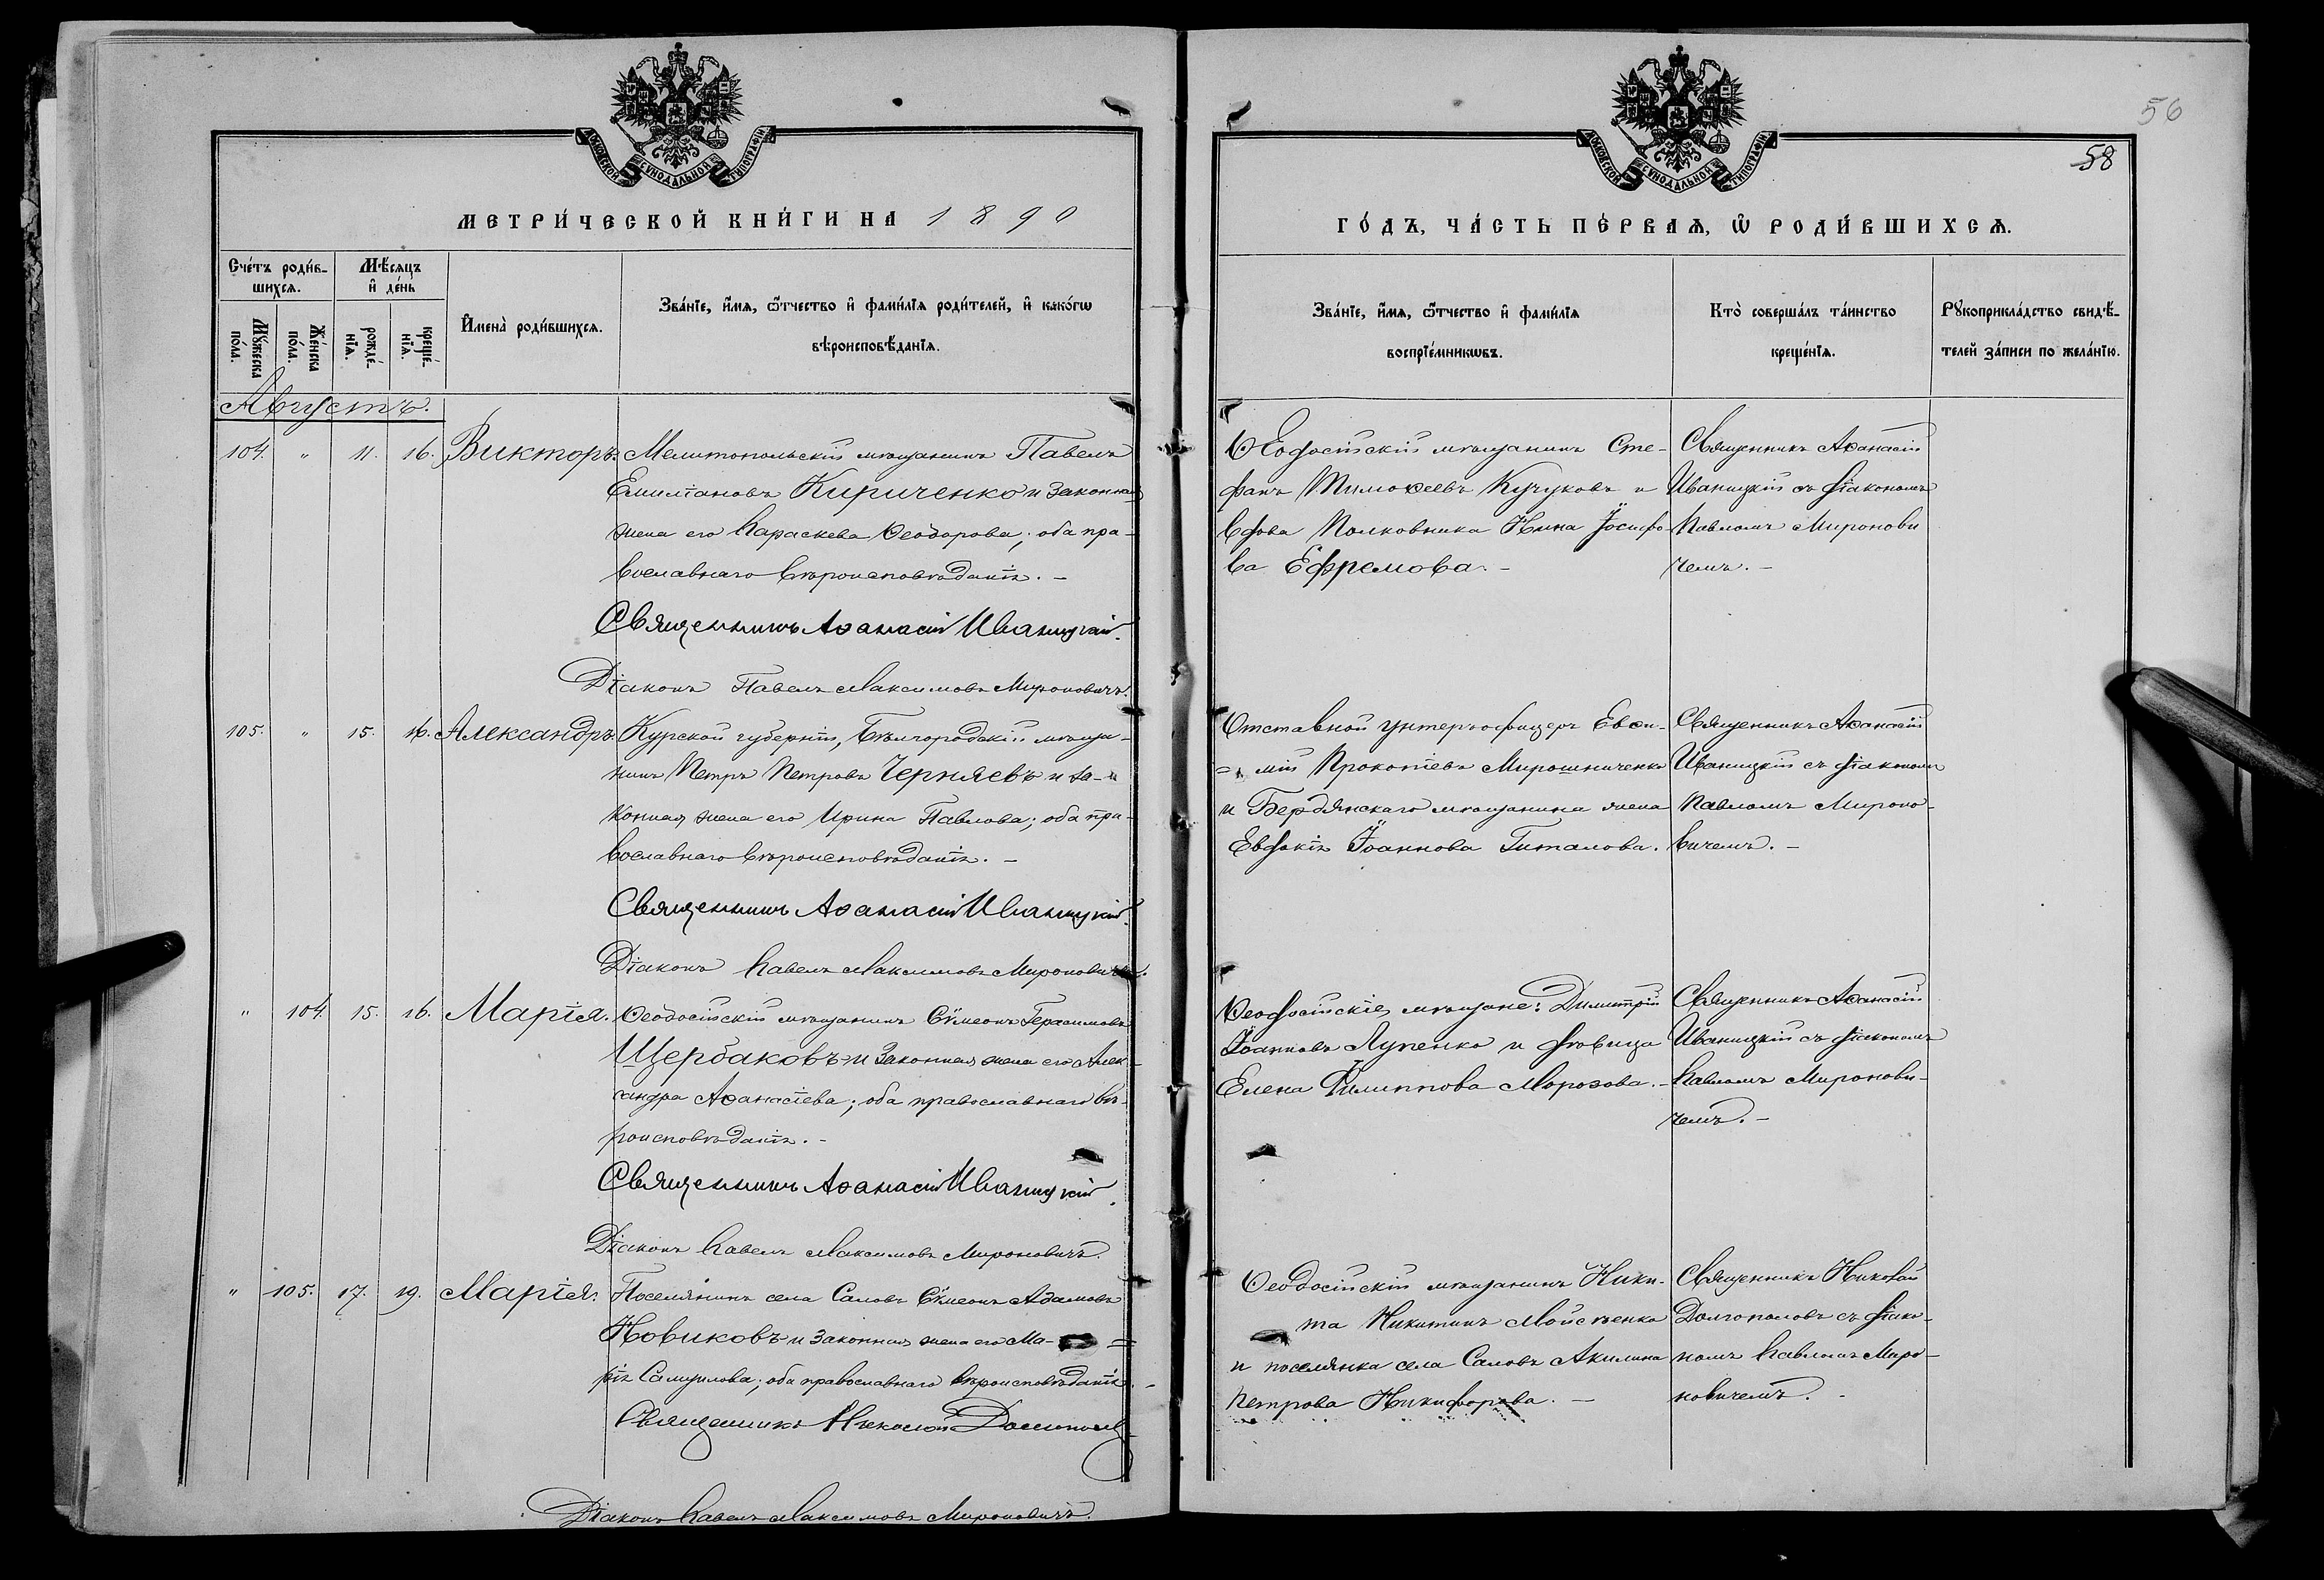 МОСКОВСКОЙ СѴНОДАЛЬНОЙ ТИПОГРАФІИ
МЕТРИ́ЧЕСКОЙ КНИ́ГИ НА 1890
Сче́тъ роди́в-
шихсѧ.
Мѣ́сѧцъ
и҆ де́нь
Мꙋ́жеска
по́ла.
Же́нска
по́ла.
рожде́-
нїѧ.
креще́-
нїѧ.
И҆мена̀ роди́вшихсѧ.
Зва́нїе, и҆́мѧ, ѻ҆́тчество и҆ фами́лїѧ роди́телей, и҆ како́гѡ
вѣроисповѣ́данїѧ.
Августъ.
104. " 11. 16. Викторъ. Мелитопольскій мѣщанинъ Павелъ
Емиліановъ Кириченко и законная
жена его Параскева Ѳеодорова; оба пра-
вославнаго вѣроисповѣданія. –
Священникъ Аѳанасій Иваницкій.
Діаконъ Павелъ Максимовъ Мироновичъ.
105. " 15. 16. Александръ. Курской губерніи, Бѣлгородскій мѣща-
нинъ Петръ Петровъ Черняевъ и за-
конная жена его Ирина Павлова; оба пра-
вославнаго вѣроисповѣданія. –
Священникъ Аѳанасій Иваницкій.
Діаконъ Павелъ Максимовъ Мироновичъ.
" 104. 15. 16. Марія. Ѳеодосійскій мѣщанинъ Сѵмеонъ Герасимовъ
Щербаковъ и законная жена его Алек-
сандра Аѳанасіева; оба православнаго вѣ-
роисповѣданія. –
Священникъ Аѳанасій Иваницкій.
Діаконъ Павелъ Максимовъ Мироновичъ.
" 105. 17. 19. Марія. Поселянинъ села Саловъ Сѵмеонъ Адамовъ
Новиковъ и законная жена его Ма-
рія Самуилова; оба православнаго вѣроисповѣданія. –
Священникъ Николай Долгополовъ
Діаконъ Павелъ Максимовъ Мироновичъ.
56
58
МОСКОВСКОЙ СѴНОДАЛЬНОЙ ТИПОГРАФІИ
ГО́ДЪ, ЧА́СТЬ ПЕ́РВАѦ, Ѽ РОДИ́ВШИХСѦ.
Зва́нїе, и҆́мѧ, ѻ҆́тчество и҆ фами́лїѧ
воспрїе́мникѡвъ.
Кто̀ соверша́лъ та́инство
креще́нїѧ.
Рꙋкоприкла́дство свидѣ́-
телей за́писи по жела́нїю.
Ѳеодосійскій мѣщанинъ Сте-
фанъ Тимоѳеевъ Кучуковъ и
вдова Полковника Нина Іосифо-
ва Ефремова. –
Священникъ Аѳанасій
Иваницкій съ діакономъ
Павломъ Миронови
чемъ. –
Отставной унтеръ-офицеръ Евѳи-
мій Прокопіевъ Мирошниченко
и Бердянскаго мѣщанина жена
Евдокія Іоаннова Гиталова.
Священникъ Аѳанасій
Иваницкій съ діакономъ
Павломъ Мироно-
вичемъ. –
Ѳеодосійскіе мѣщане: Димитрій
Іоанновъ Лупенко и дѣвица
Елена Филиппова Морозова. –
Священникъ Аѳанасій
Иваницкій съ діакономъ
Павломъ Миронови-
чемъ. –
Ѳеодосійскій мѣщанинъ Ники-
та Никитинъ Мойсѣенко
и поселянка села Саловъ Акилина
Петрова Никифорова. –
Священникъ Николай
Долгополовъ съ діако-
номъ Павломъ Миро-
новичемъ. –